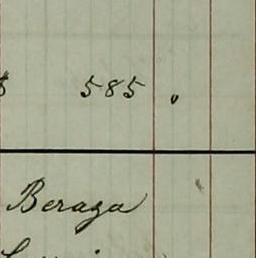 585 "
Beraza